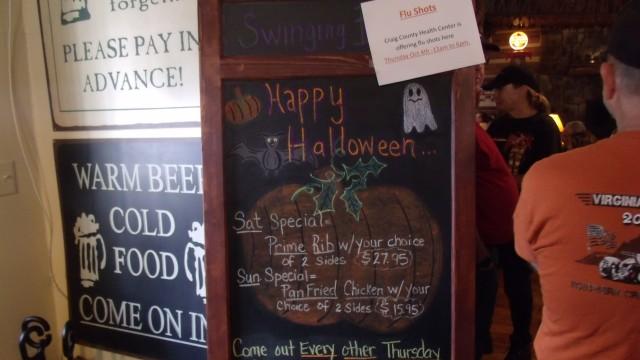 forget
PLEASE PAY IN
ADVANCE!
WARM BEER
COLD
FOOD
COME ON IN
Swinging
Flu Shots
Craig County Health Center is
offering flu shots here
Thursday Oct 4th - 11am to 6pm.
Happy
Halloween...
Sat Special=
Prime Rib w/your choice
of 2 Sides ($27.95)
Sun Special=
Pan Fried Chicken w/your
Choice of 2 Sides ($15.95)
Come out Every other Thursday
VIRGINIA
20